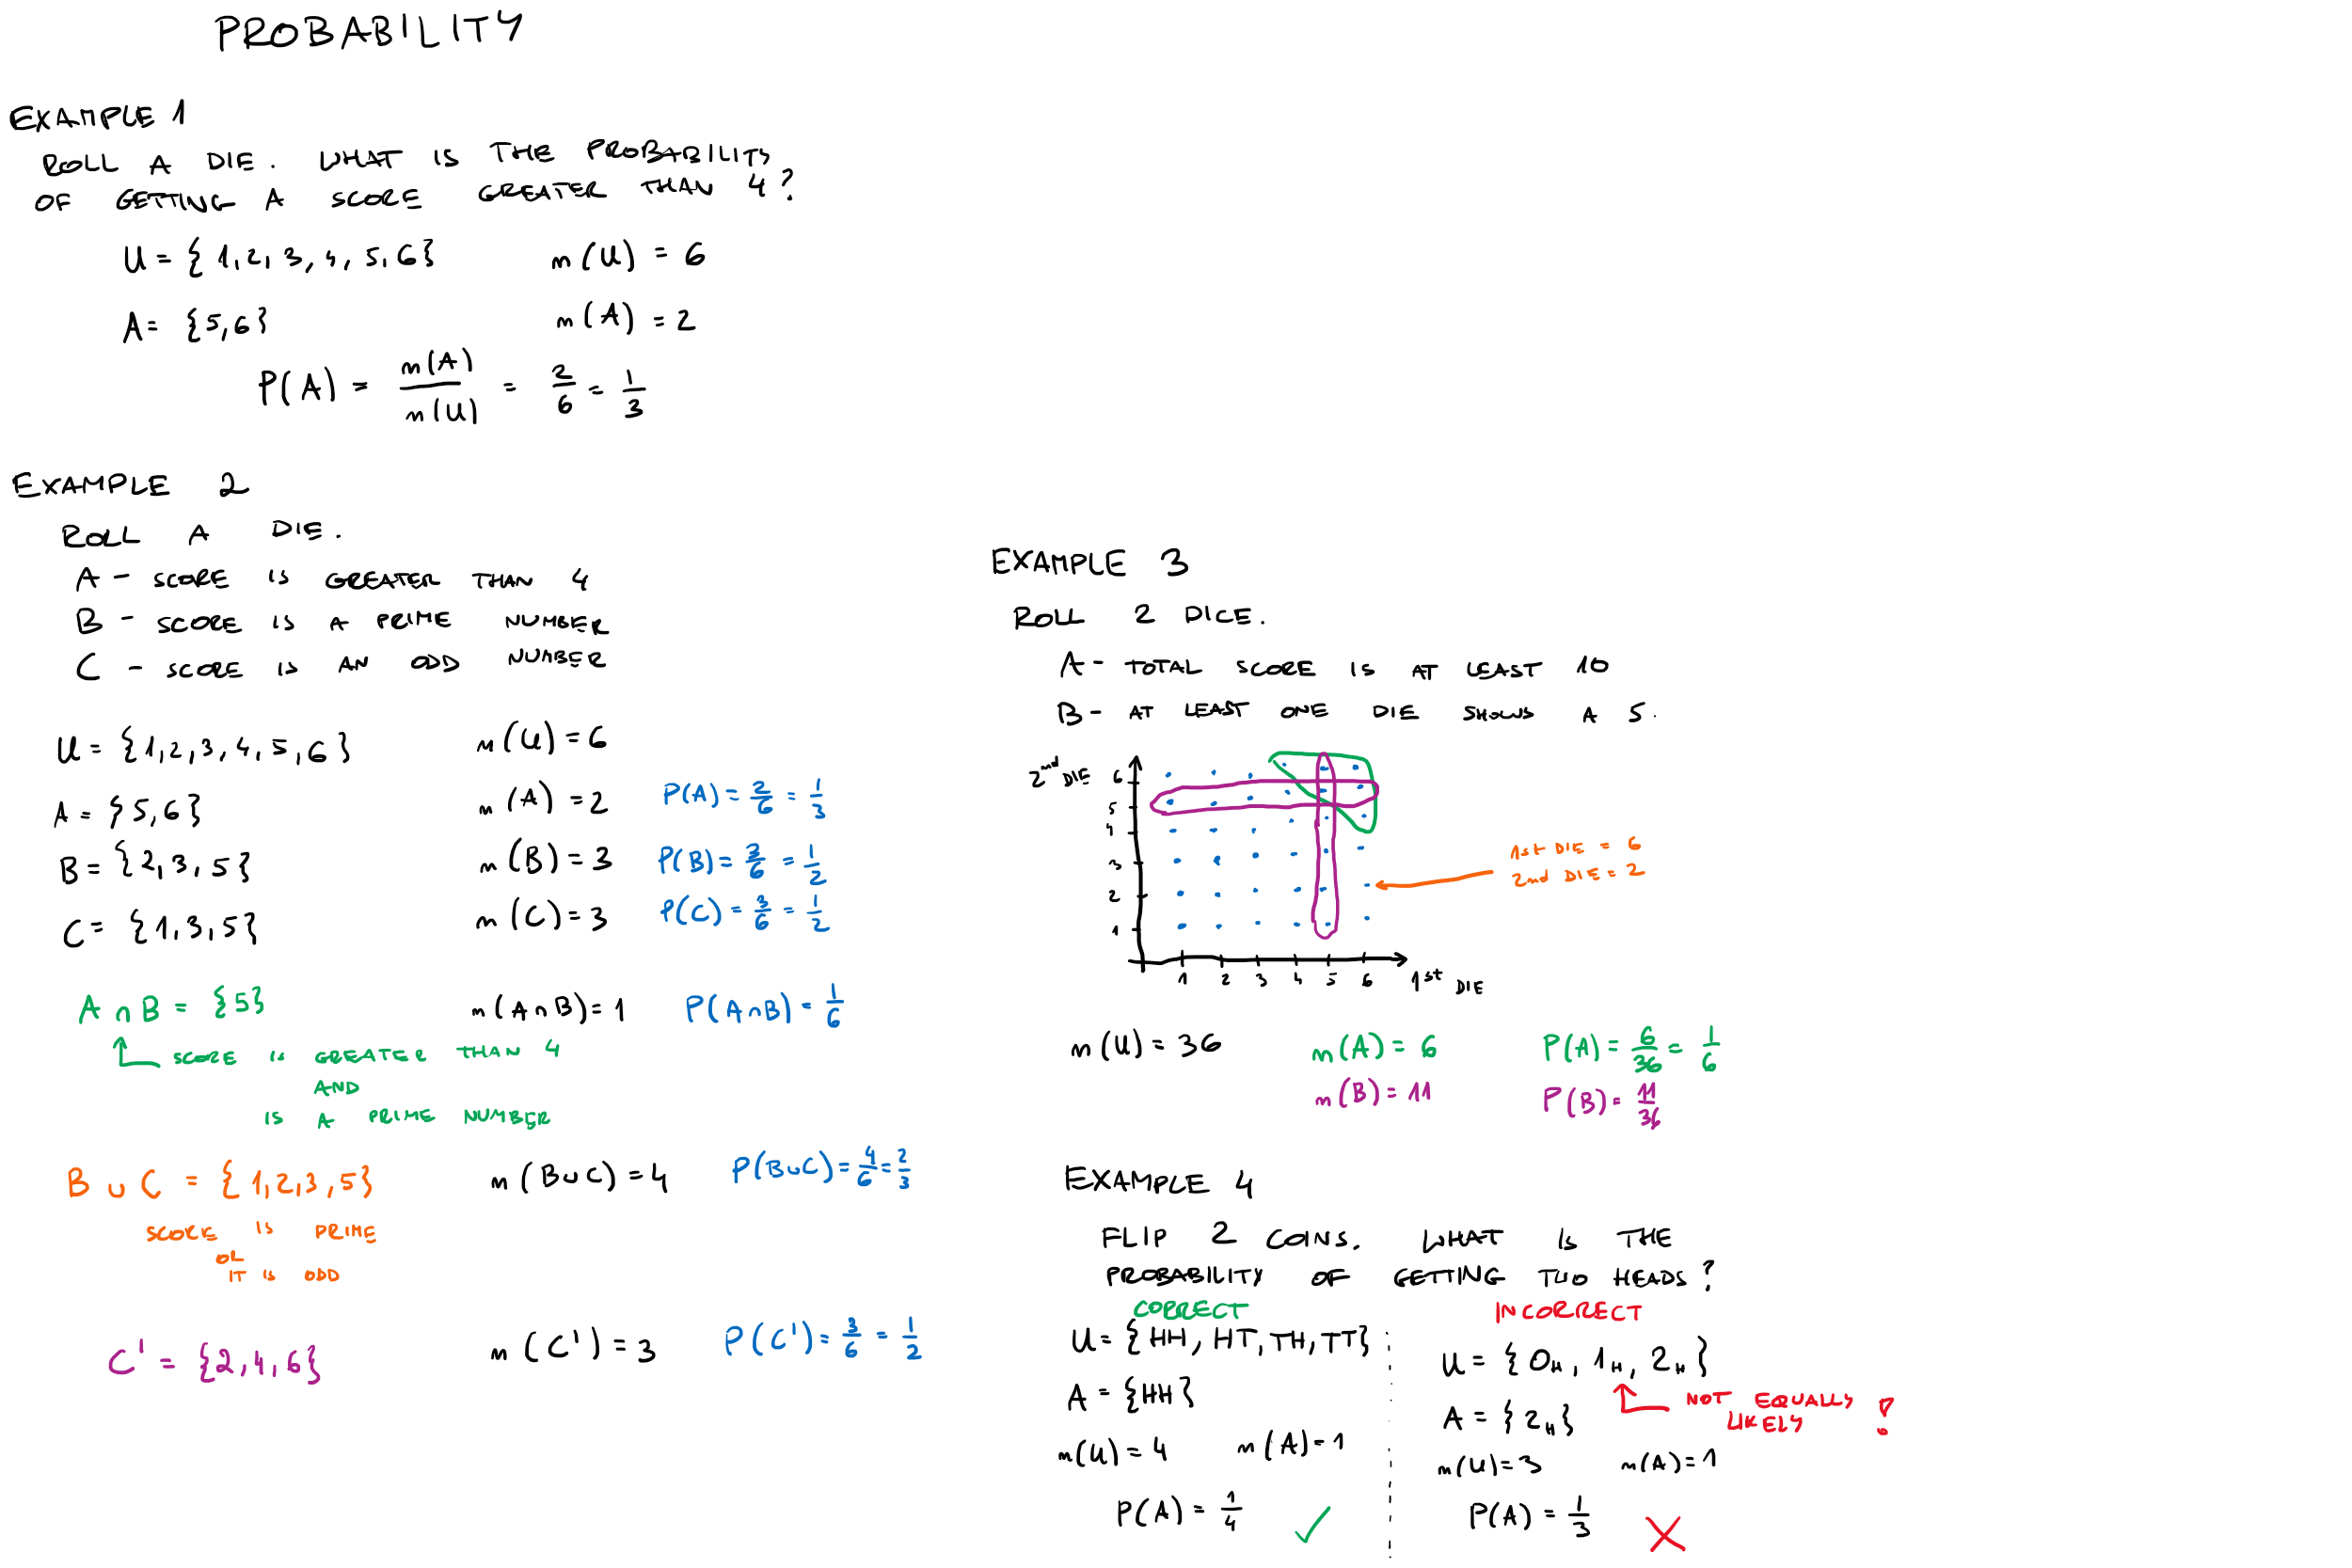 PROBABILITY
EXAMPLE 1
ROLL A DIE. WHAT IS THE PROBABILITY
OF GETTING A SCORE GREATER THAN 4?
U = {1,2,3,4,5,6} n(U) = 6
A = {5,6} n(A) = 2
P(A) = n(A)/n(U) = 2/6 = 1/3
EXAMPLE 2
ROLL A DIE.
A - SCORE IS GREATER THAN 4
B - SCORE IS A PRIME NUMBER
C - SCORE IS AN ODD NUMBER
U = {1,2,3,4,5,6} n(U) = 6
A = {5,6} n(A) = 2 P(A) = 2/6 = 1/3
B = {2,3,5} n(B) = 3 P(B) = 3/6 = 1/2
C = {1,3,5} n(C) = 3 P(C) = 3/6 = 1/2
A ∩ B = {5} n(A∩B) = 1 P(A∩B) = 1/6
SCORE IS GREATER THAN 4
AND
IS A PRIME NUMBER
B ∪ C = {1,2,3,5} n(B∪C) = 4 P(B∪C) = 4/6 = 2/3
SCORE IS PRIME
OR
IT IS ODD
C' = {2,4,6} n(C') = 3 P(C') = 3/6 = 1/2
EXAMPLE 3
ROLL 2 DICE.
A - TOTAL SCORE IS AT LEAST 10
B - AT LEAST ONE DIE SHOWS A 5.
2nd DIE 6
5
4
3
2
1
1 2 3 4 5 6 1st DIE
1st DIE = 6
2nd DIE = 2
n(U) = 36 n(A) = 6 P(A) = 6/36 = 1/6
n(B) = 11 P(B) = 11/36
EXAMPLE 4
FLIP 2 COINS. WHAT IS THE
PROBABILITY OF GETTING TWO HEADS?
CORRECT
U = {HH, HT, TH, TT}
A = {HH}
n(U) = 4 n(A) = 1
P(A) = 1/4 ✓
INCORRECT
U = {0H, 1H, 2H}
NOT EQUALLY
LIKELY !
A = {2H}
n(U) = 3 n(A) = 1
P(A) = 1/3 ✗